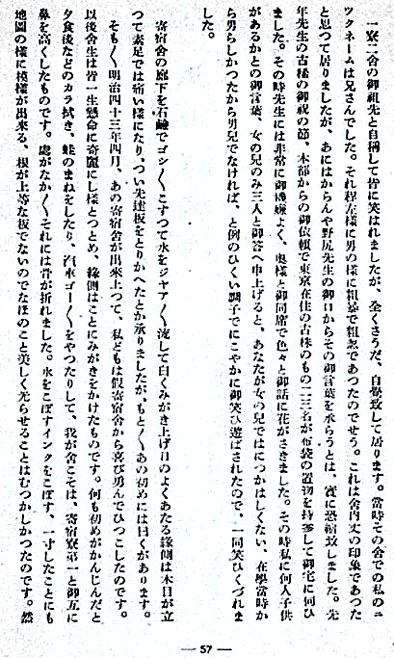 一寮二舎の御祖先と自稱して皆に笑はれましたが、全くさうだ、自覺致して居ります。當時での舎での私のニ
ツクネームは兄さんでした。それ程左樣に男の樣に粗暴で粗忽であつたのでせう。これは舎内丈の印象であつた
と思つて居りましたが、あにはからんや野尻先生の御口からその御言葉を承らうとは、實に恐縮致しました。先
年先生の古稀の御祝の節、本部からの御依頼で東京在住の古株のもの二三名が布袋の置物を持參して御宅に伺ひ
ました。その時先生には非常に御機嫌よく、奥樣と御同席で色々と御話に花がさきました。その時私に何人子供
があるかとの御言葉、女の兒のみ三人と御答へ申上げると、あなたが女の兒ではにつかはしくない、在學當時か
ら男らしかつたから男兒でなければ、と例のひくい調子でにこやかに御笑ひ遊ばされたので、一同笑ひくづれま
した。
寄宿舎の廊下を石鹼でゴシ〳〵こすつて水をジヤア〳〵流して白くみがき上げ日のよくあたる縁側は木目が立
つて素足では痛い樣になり、つい先達板をとりかへたとか承りましたが、もと〳〵あの初めには曰くがあります。
そも〳〵明治四十三年四月、あの寄宿舎が出來上つて、私どもは假寄宿舎から喜び勇んでひつこしたのです。
以後舎生は皆一生懸命に奇麗にし樣とつとめ、緣側はことにみがきをかけたものです。何も初めがかんじんだと
夕食後などのカラ拭き、蛙のまねをしたり、汽車ゴー〳〵をやつたりして、我が舎こそは、寄宿寮第一と御互に
鼻を高くしたものです。處がなか〳〵それには骨が折れました。水をこぼすインクをこぼす、一寸したことにも
地圖の樣に模樣が出來る、根が上等な板でないのでなほのこと美しく光らせることはむつかしかつたのです。然
— 57 —